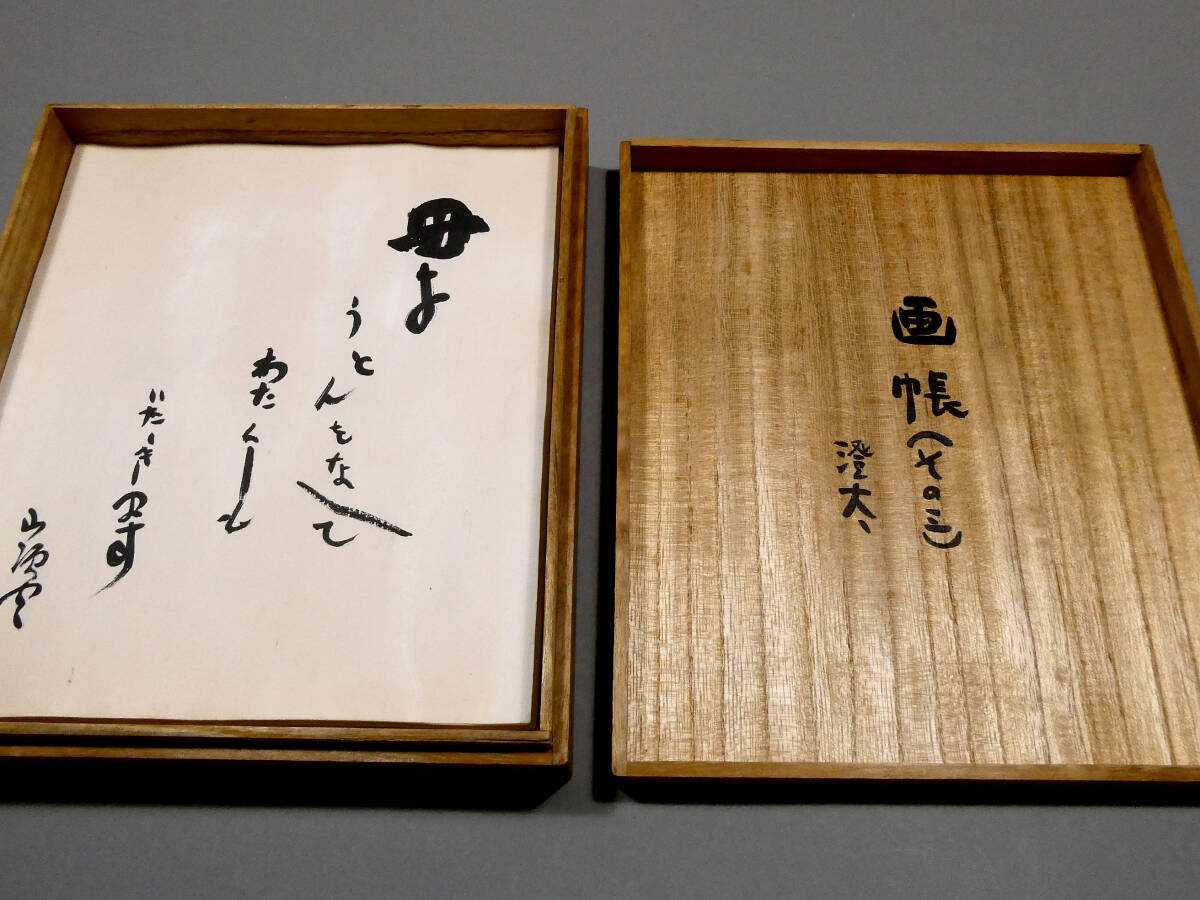 母よ
うとんそなへて
わたくしも
いたゝきます
山頭火
画帳(その三)
澄太